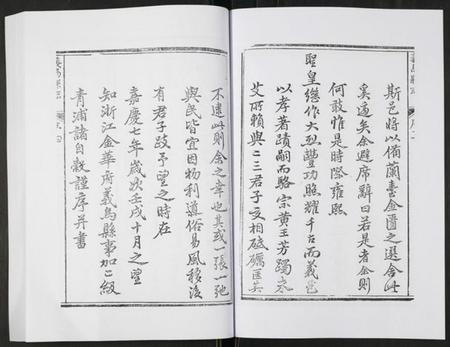 斯邑時以備蘭臺金匱之選舍此
奚適矣余避席辭曰若是者余則
何敢惟是時際雍熙
聖皇繼作大丑豐功照耀千古而義邑
以孝著蹟嗣而駱宗黃王芳躅未
艾所賴與二三君子交相砥礪匡其
不逮此則余之幸也其或一張一弛
與民皆宜因物利導俗易風移後
有君子致予望之時在
嘉慶七年歲次壬戌十月之望
知浙江金華府義烏縣事加二級
青浦諸自穀謹序并書